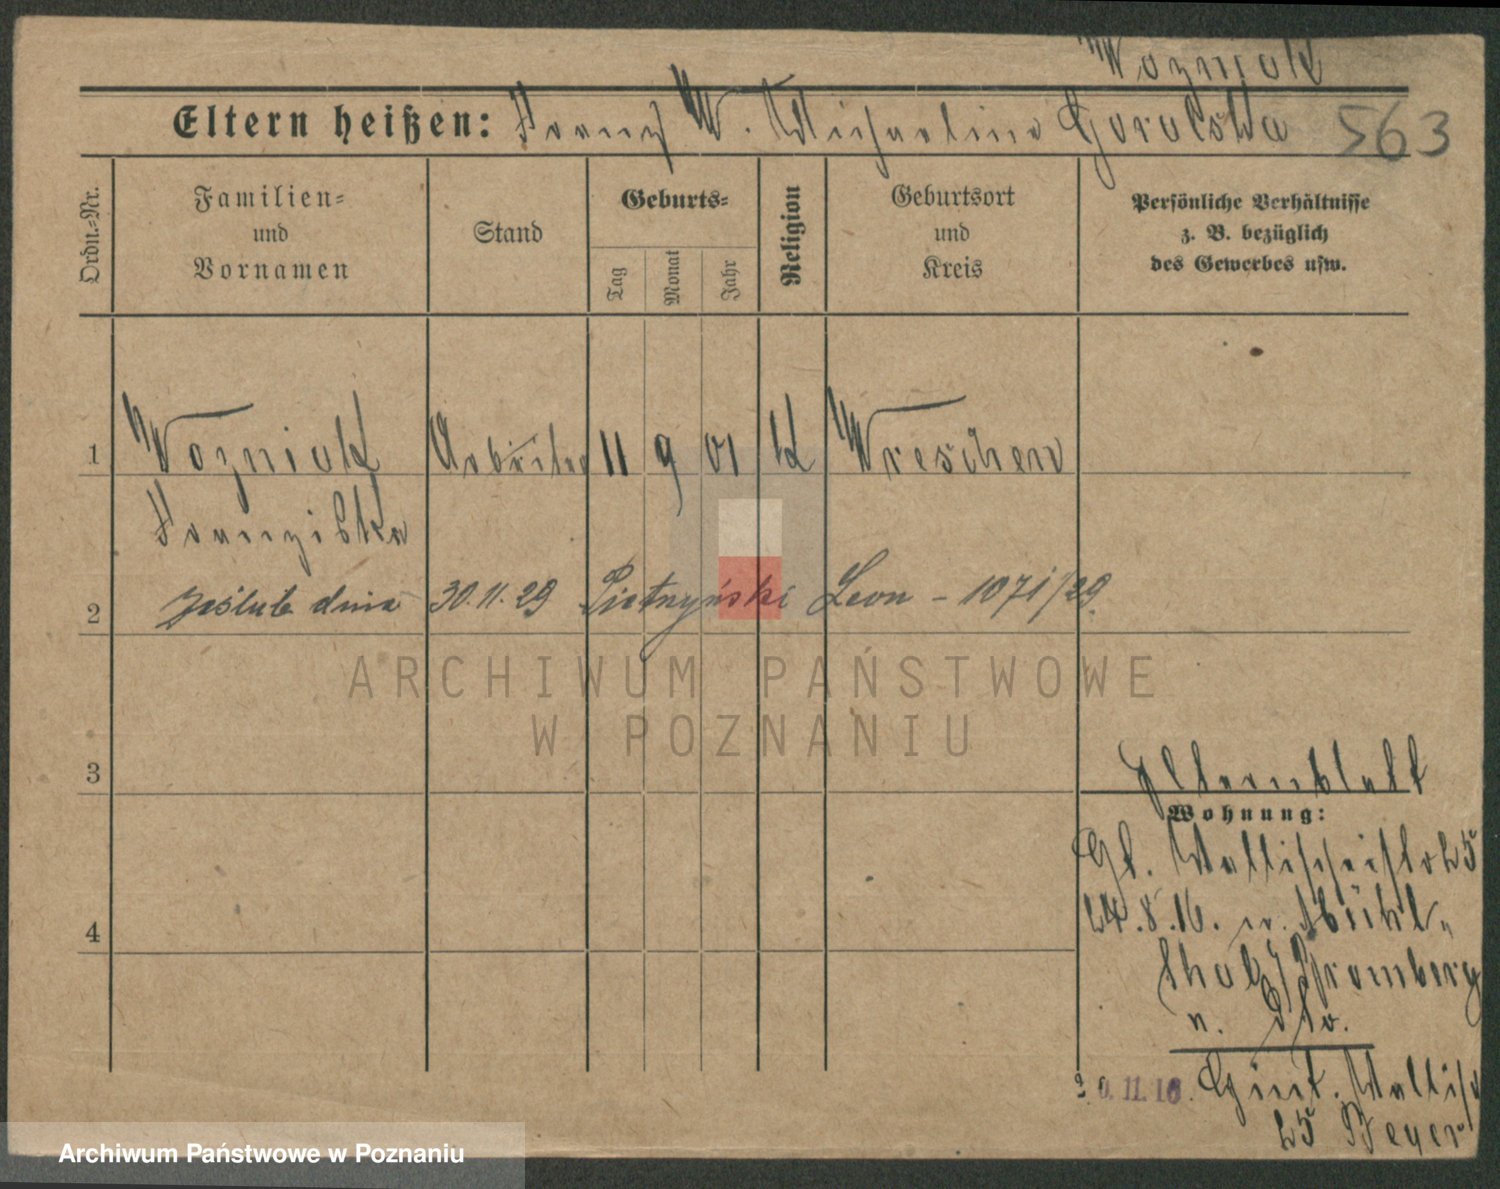 Wozniak
Eltern heißen: Franz W. Michaelina Goralska 563
Ordn.-Nr.
Familien-
und
Vornamen
Stand
Geburts-
Tag
Monat
Jahr
Religion
Geburtsort
und
Kreis
Persönliche Verhältnisse
z. B. bezüglich
des Gewerbes usw.
1 Wozniak Arbeiter 11 9 01 K Wreschen
Franziska
2 zaślub. dnia 30.11.29 Leon - 1071/29
ARCHIWUM PAŃSTWOWE
W POZNANIU
3
Elternblatt
Wohnung:
25
4 24.8.16. n. Mühl-
thal / Bromberg
n. dto.
20.11.16.
25 Beyer
Archiwum Państwowe w Poznaniu